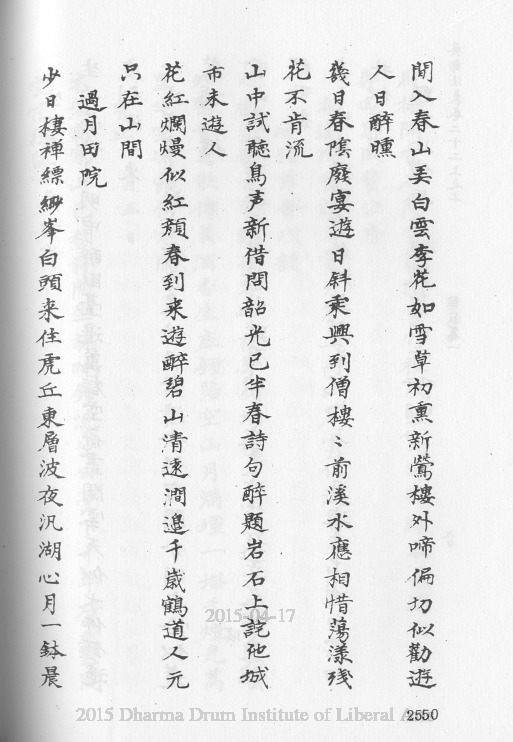 閒入春山弄白雲李花如雪草初熏新鶯樓外啼偏切似勸遊
人日醉曛
幾日春陰廢宴遊日斜乘興到僧樓〻前溪水應相惜蕩漾殘
花不肯流
山中試聽鳥声新借問韶光已半春詩句醉題岩石上託他城
市未遊人
花紅爛熳似紅顏春到来遊醉碧山清遠澗邉千歲鶴道人元
只在山間
過月田院
少日棲禅縹緲峯白頭来住虎丘東層波夜汎湖心月一鉢晨
2015-04-17
2015 Dharma Drum Institute of Liberal A
2550